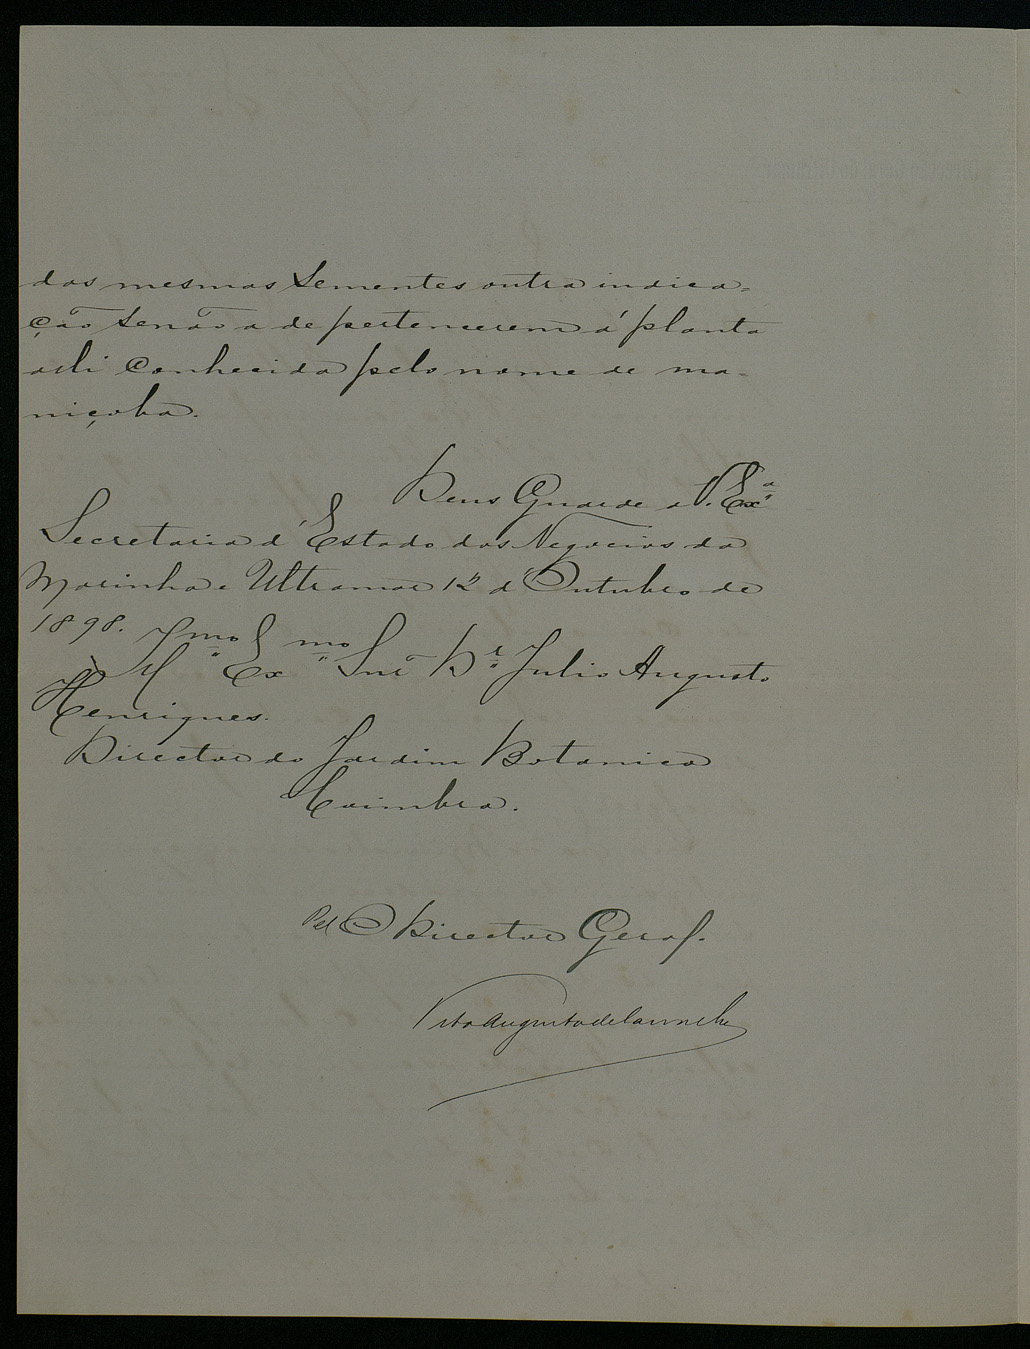 das mesmas sementes outra indica-
ção senão a de pertencerem á planta
ali conhecida pelo nome de ma-
niçoba.
Deus Guarde a V. Exª
Secretaria d'Estado dos Negocios da
Marinha e Ultramar 12 d'Outubro de
1898.
Illmo Exmo Snr Dr Julio Augusto
Henriques.
Director do Jardim Botanico
Coimbra.
Pel O Director Geral.